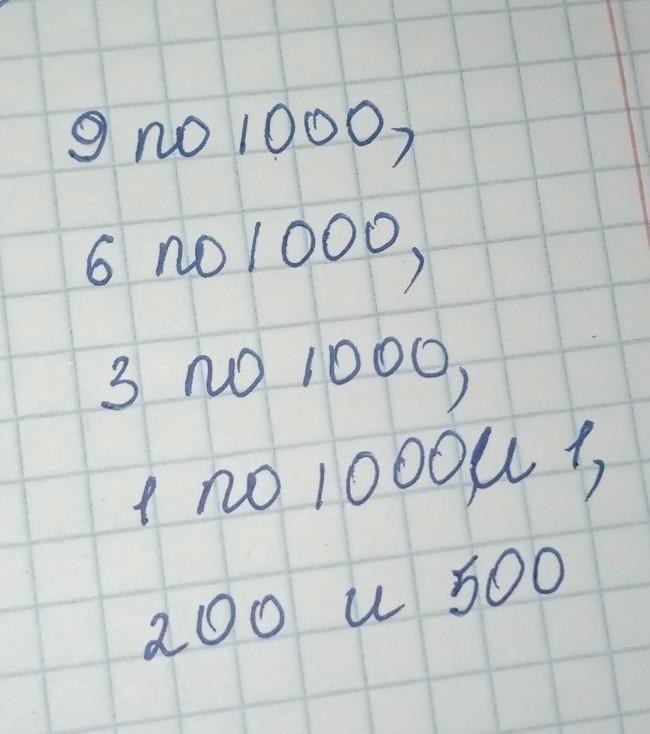 9 по 1000,
6 по 1000,
3 по 1000,
1 по 1000, и 1,
200 и 500